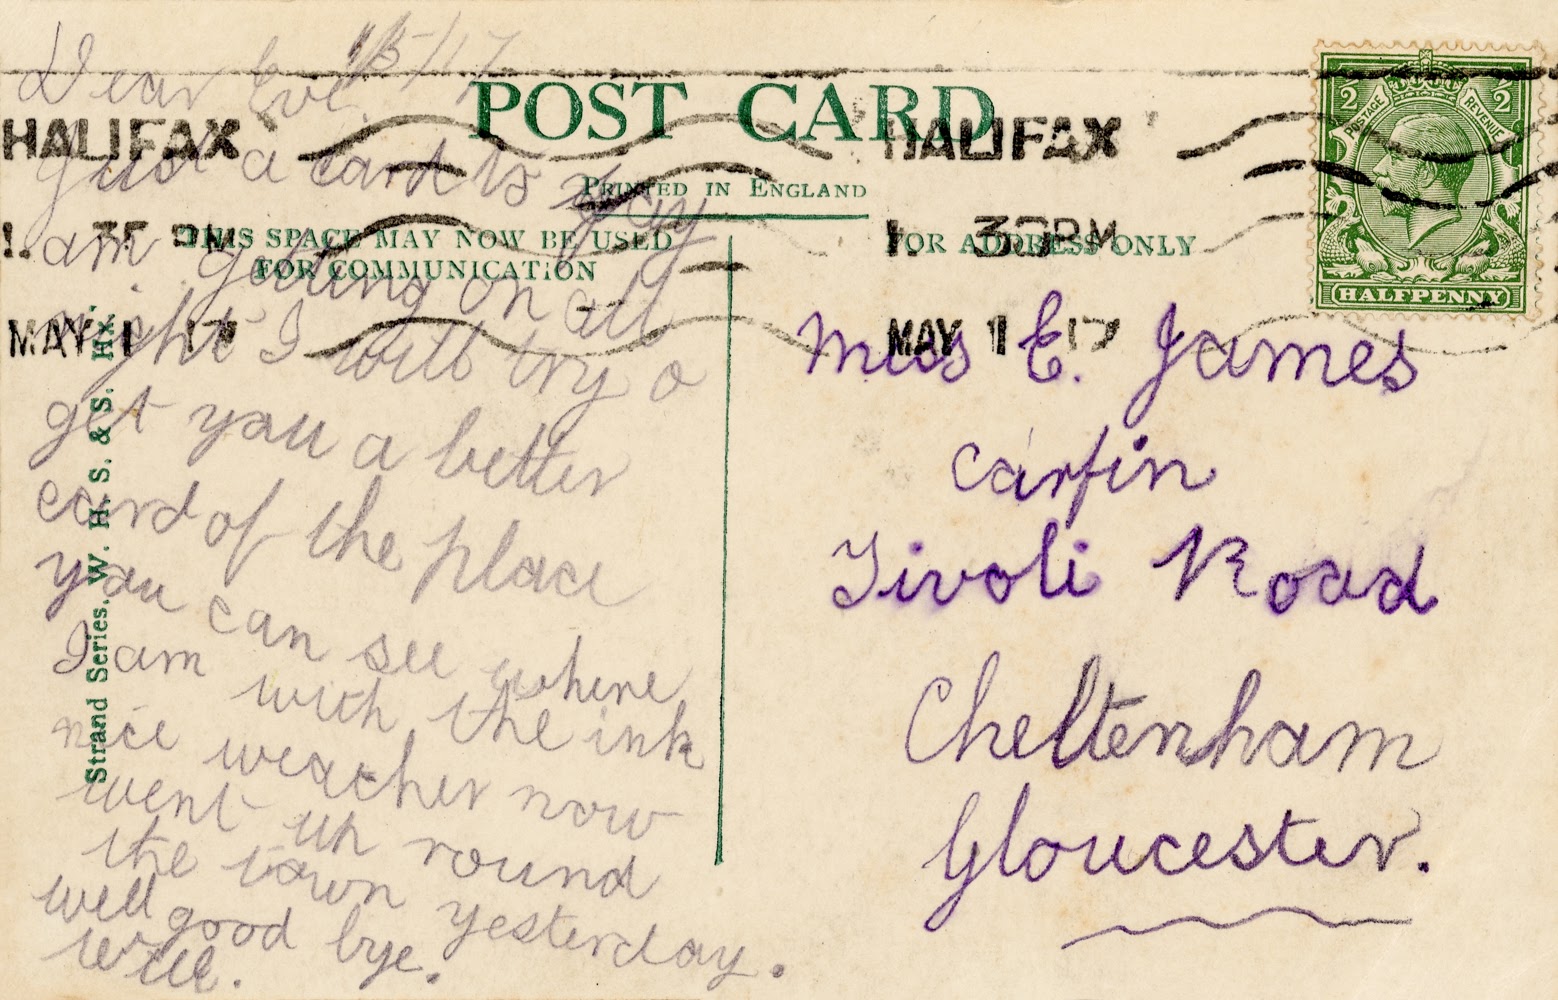 1/5/17
Dear Eve
Just a card to say
am going on all
right I will try o
get you a better
card of the place
you can see where
I am with the ink
nice weather now
went up round
the town yesterday.
well good bye.
Will.
POST CARD
PRINTED IN ENGLAND
THIS SPACE MAY NOW BE USED
FOR COMMUNICATION
FOR ADDRESS ONLY
HALIFAX
MAY 1 17
HALIFAX
1. 30 PM
MAY 1 17
2 2
POSTAGE REVENUE
HALFPENNY
Miss E. James
Carfin
Tivoli Road
Cheltenham
Gloucester.
Strand Series. W. H. S. & S. Hx.